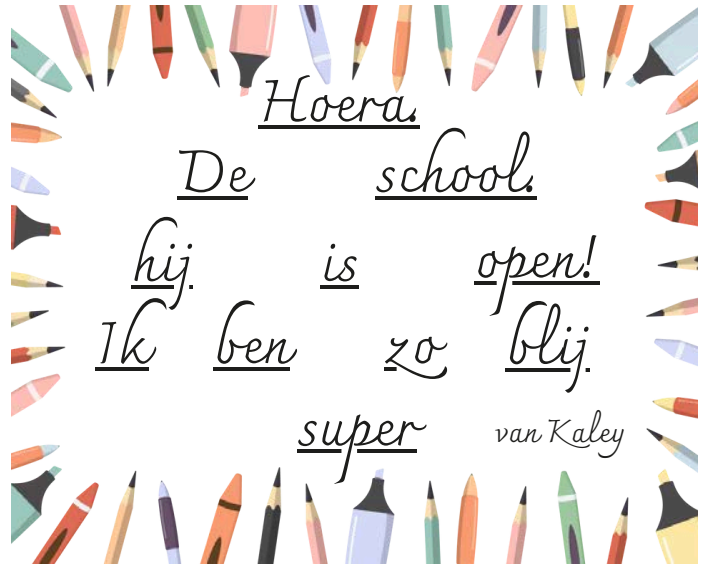 Hoera.
De school.
hij is open!
Ik ben zo blij
super
van Kaley